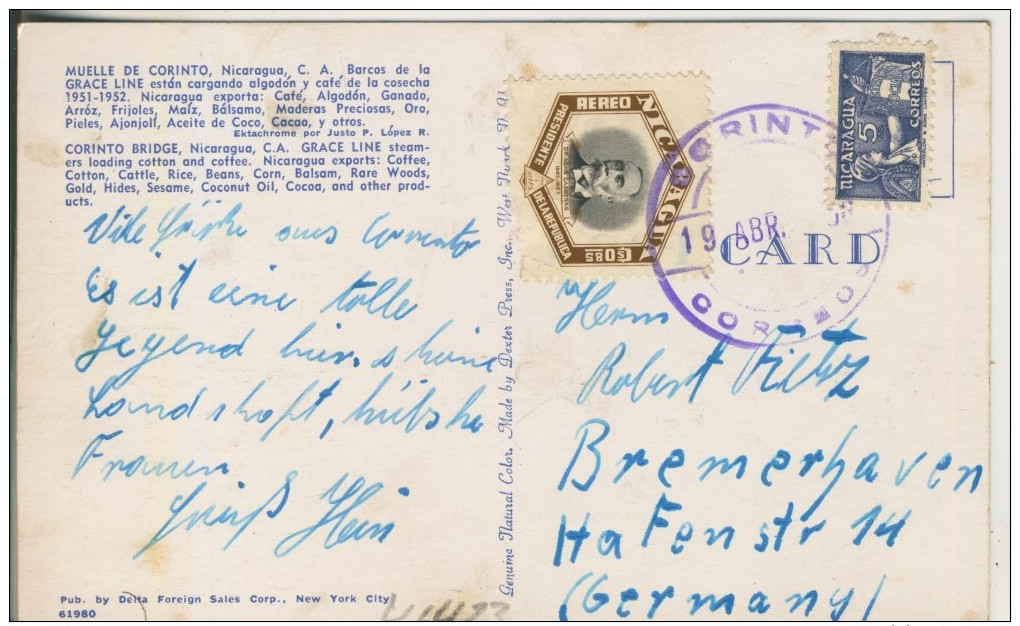 MUELLE DE CORINTO, Nicaragua, C. A. Barcos de la
GRACE LINE están cargando algodón y café de la cosecha
1951-1952. Nicaragua exporta: Café, Algodón, Ganado,
Arróz, Frijoles, Maíz, Bálsamo, Maderas Preciosas, Oro,
Pieles, Ajonjolí, Aceite de Coco, Cacao, y otros.
Ektachrome por Justo P. López R.
CORINTO BRIDGE, Nicaragua, C.A. GRACE LINE steam-
ers loading cotton and coffee. Nicaragua exports: Coffee,
Cotton, Cattle, Rice, Beans, Corn, Balsam, Rare Woods,
Gold, Hides, Sesame, Coconut Oil, Cocoa, and other prod-
ucts.
Viele Grüße aus
Es ist eine tolle
Gegend hier, schöne
Landschaft, hübsche
Frauen
Gruß Hein
Pub. by Delta Foreign Sales Corp., New York City
61980
Genuine Natural Color. Made by Dexter Press, Inc., West Nyack N. Y.
AEREO
NICARAGUA
PRESIDENTE
DE LA REPUBLICA
C$0.85
NICARAGUA 5
CORREOS
CORINT
19 ABR.
CORREOS
CARD
Herrn
Robert
Bremerhaven
Hafenstr 14
(Germany)